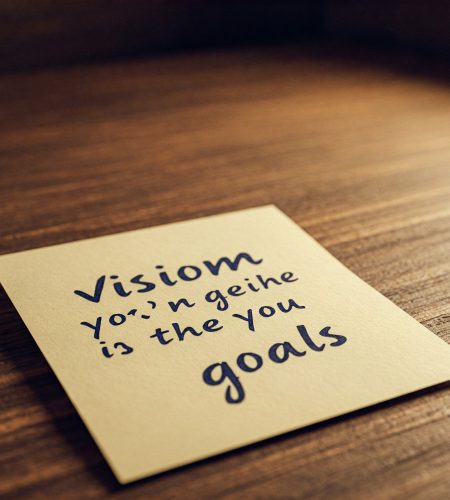 Visiom
n geihe
is the you
goals